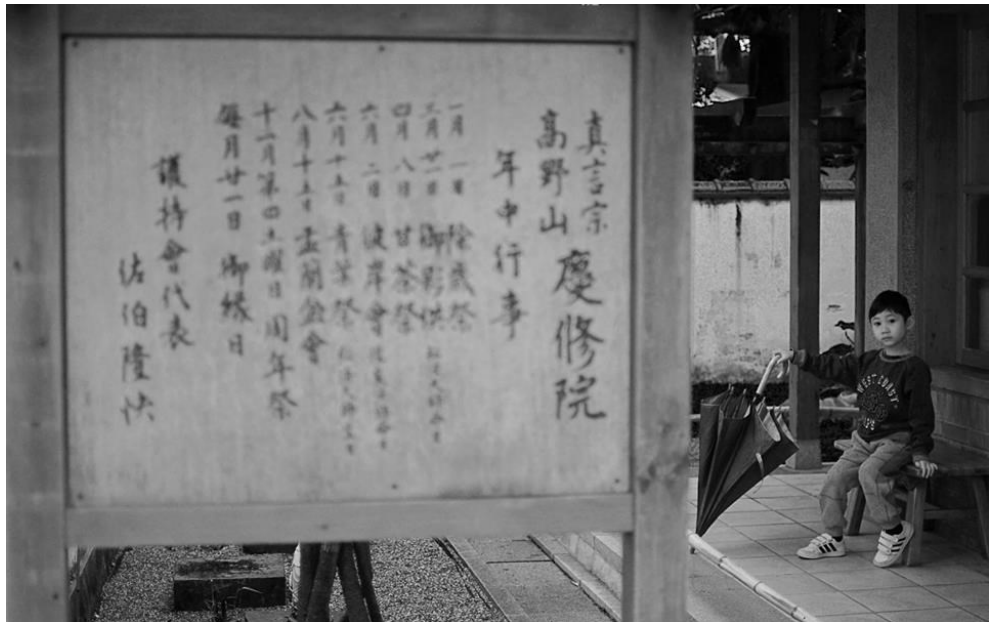 真言宗
高野山
慶修院
年中行事
一月 一日 除歳祭
三月 廿一日 御影供
四月 八日 甘茶祭
六月 二日 彼岸會
六月十五日 青葉祭
八月十五日 盂蘭盆會
十一月第四土曜日 周年祭
每月廿一日 御縁日
護持會代表
佐伯隆快
WEST COAST